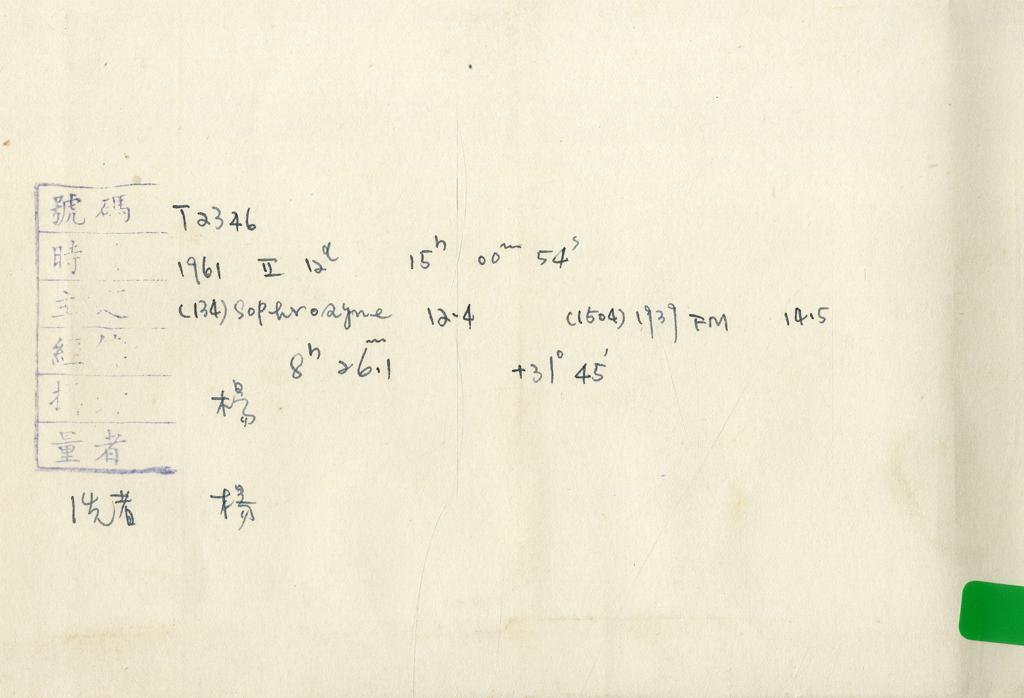 號碼 T2346
時 1961 II 12ᵈ 15ʰ 00ᵐ 54ˢ
主 (134) Sophrozyne 12.4 (1504) 1939 FM 14.5
經 8ʰ 26ᵐ.1 +31° 45′
楊
量者
洗者 楊